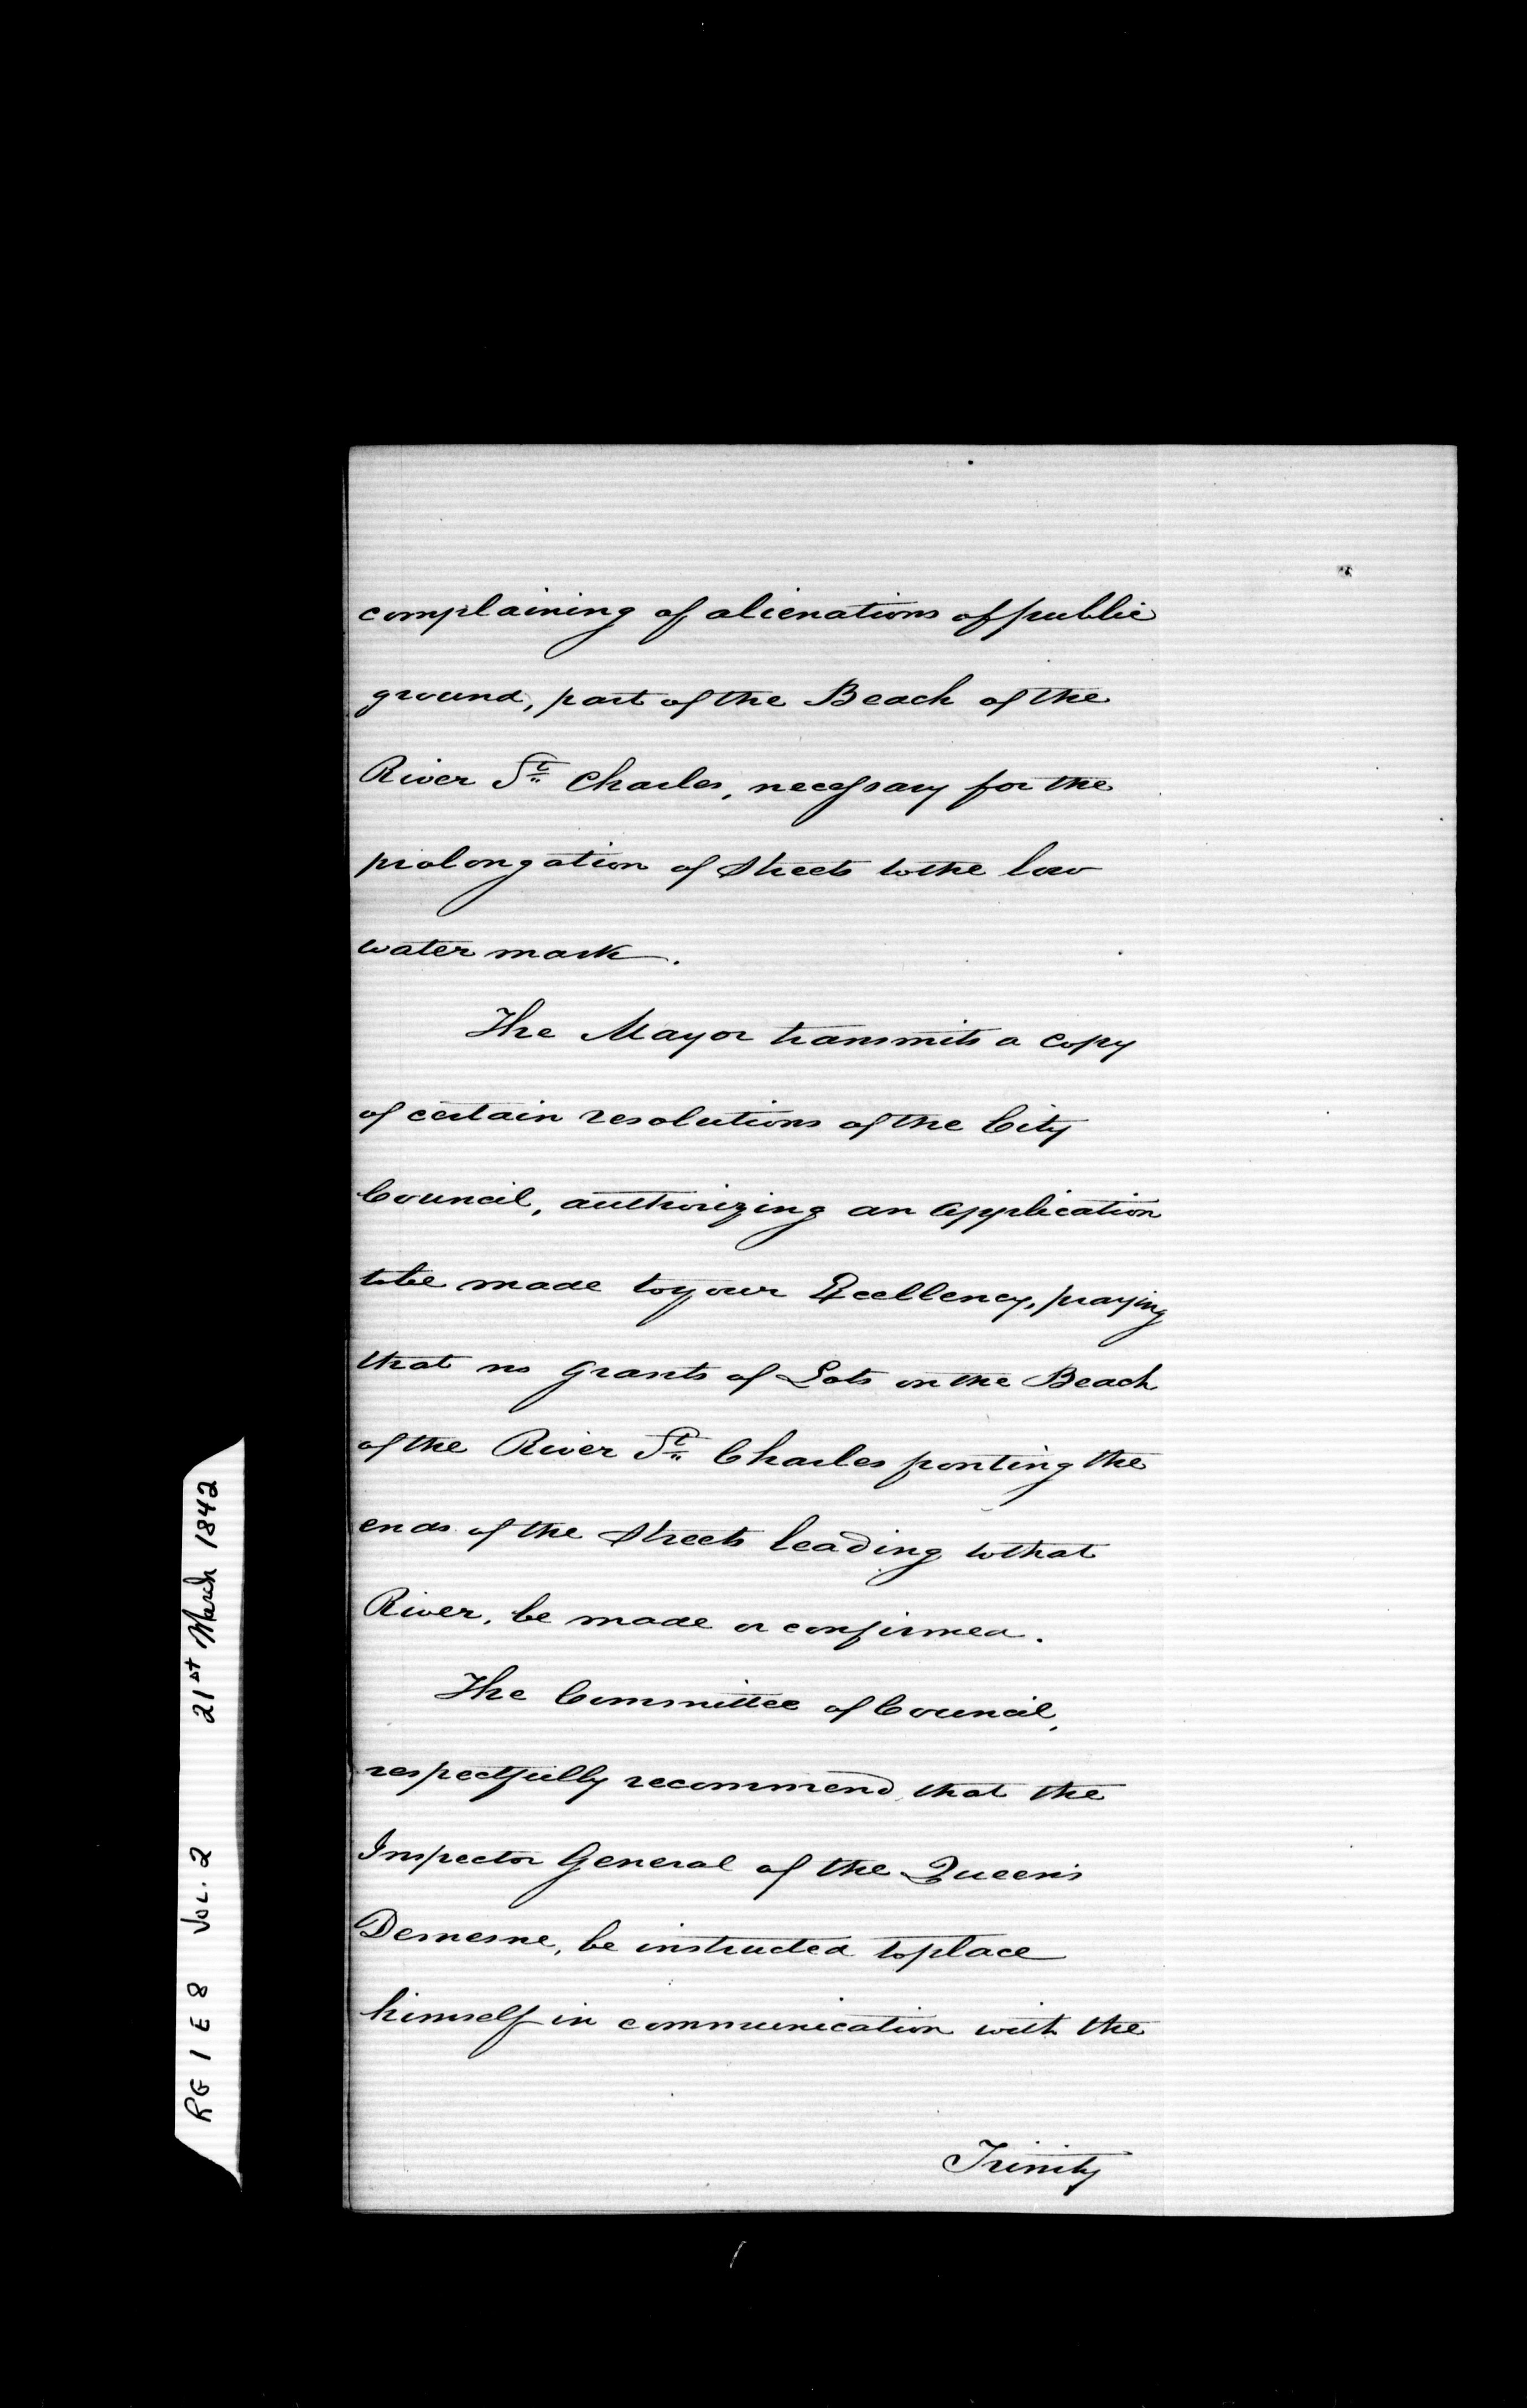 complaining of alienations of public
ground, part of the Beach of the
River St. Charles, necessary for the
prolongation of Streets to the low
water mark.
The Mayor transmits a Copy
of certain resolutions of the City
Council, authorizing an application
to be made to your Excellency, praying
that no grants of Lots on the Beach
of the River St. Charles fronting the
ends of the Streets leading to that
River, be made or confirmed.
The Committee of Council,
respectfully recommend that the
Inspector General of the Queen's
Demesne, be instructed to place
himself in communication with the
Trinity
RG 1 E 8 VOL. 2 21st March 1842